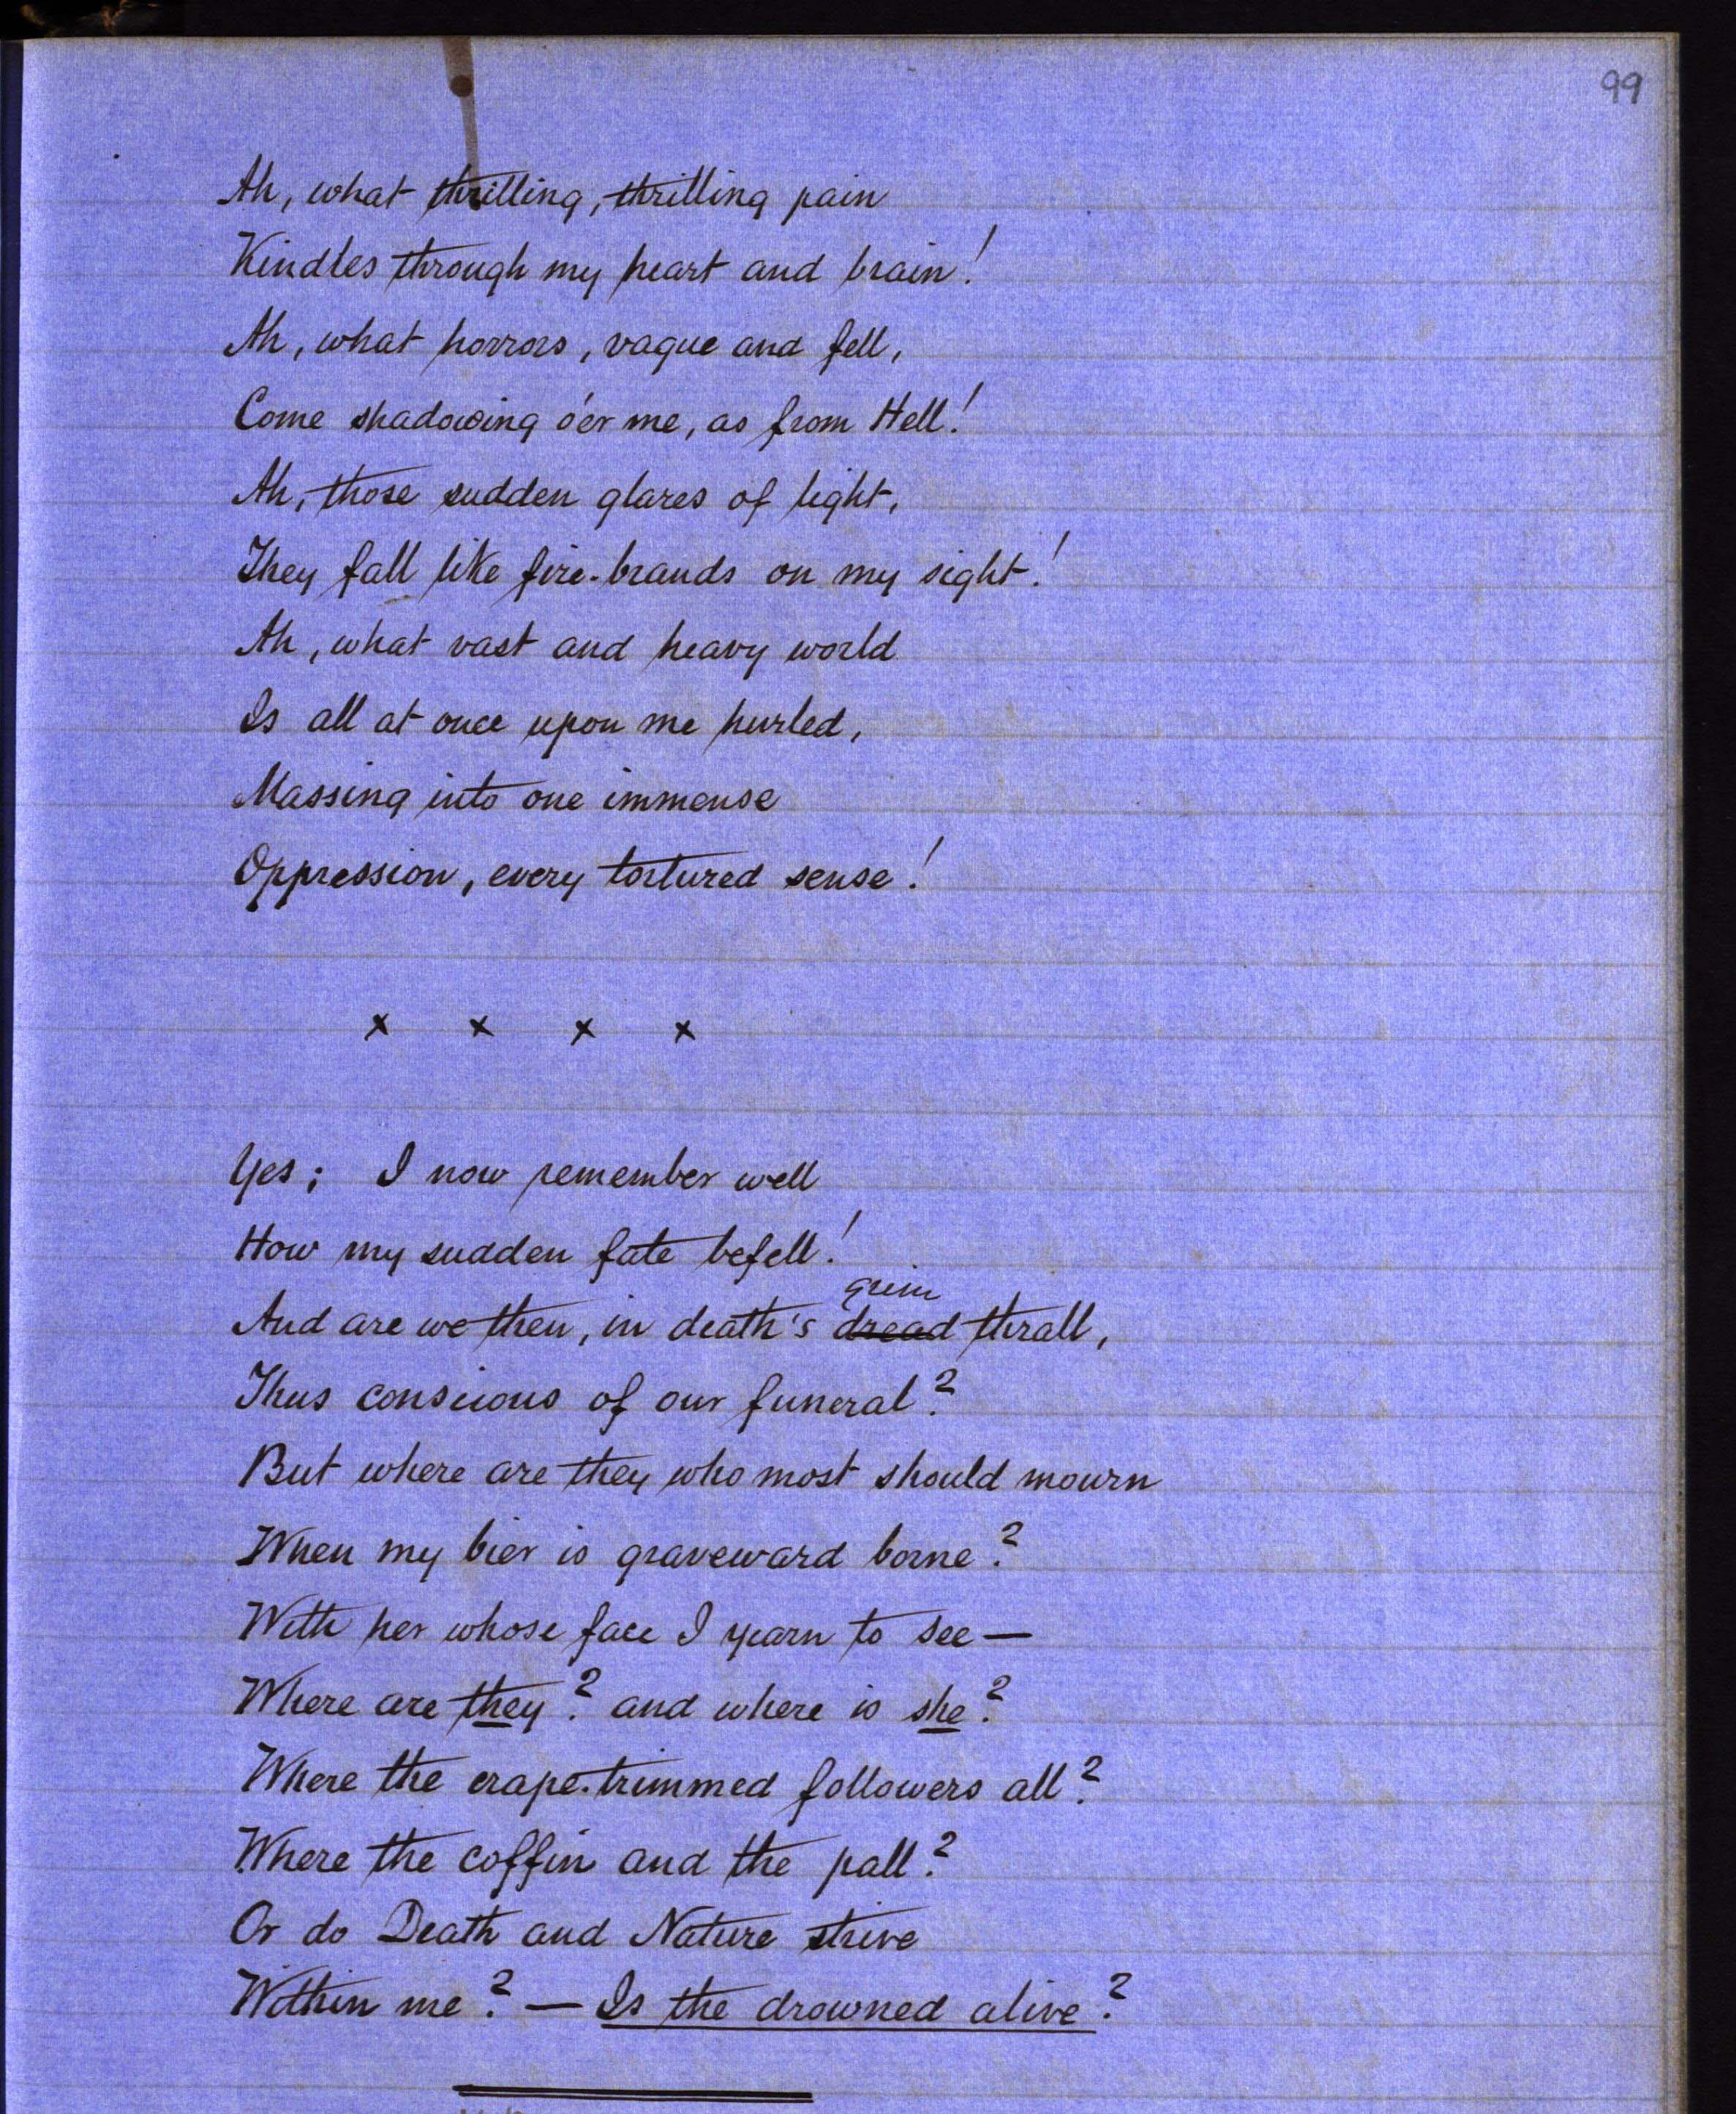 99
Ah, what thrilling, thrilling pain
Kindles through my heart and brain!
Ah, what horrors, vague and fell,
Come shadowing o'er me, as from Hell!
Ah, those sudden glares of light,
They fall like fire-brands on my sight!
Ah, what vast and heavy world
Is all at once upon me hurled,
Massing into one immense
Oppression, every tortured sense!
x x x x
Yes; I now remember well
How my sudden fate befell!
grim
And are we then, in death's dread thrall,
Thus conscious of our funeral?
But where are they who most should mourn
When my bier is graveward borne?
With her whose face I yearn to see—
Where are they? and where is she?
Where the crape-trimmed followers all?
Where the coffin and the pall?
Or do Death and Nature strive
Within me? — Is the drowned alive?